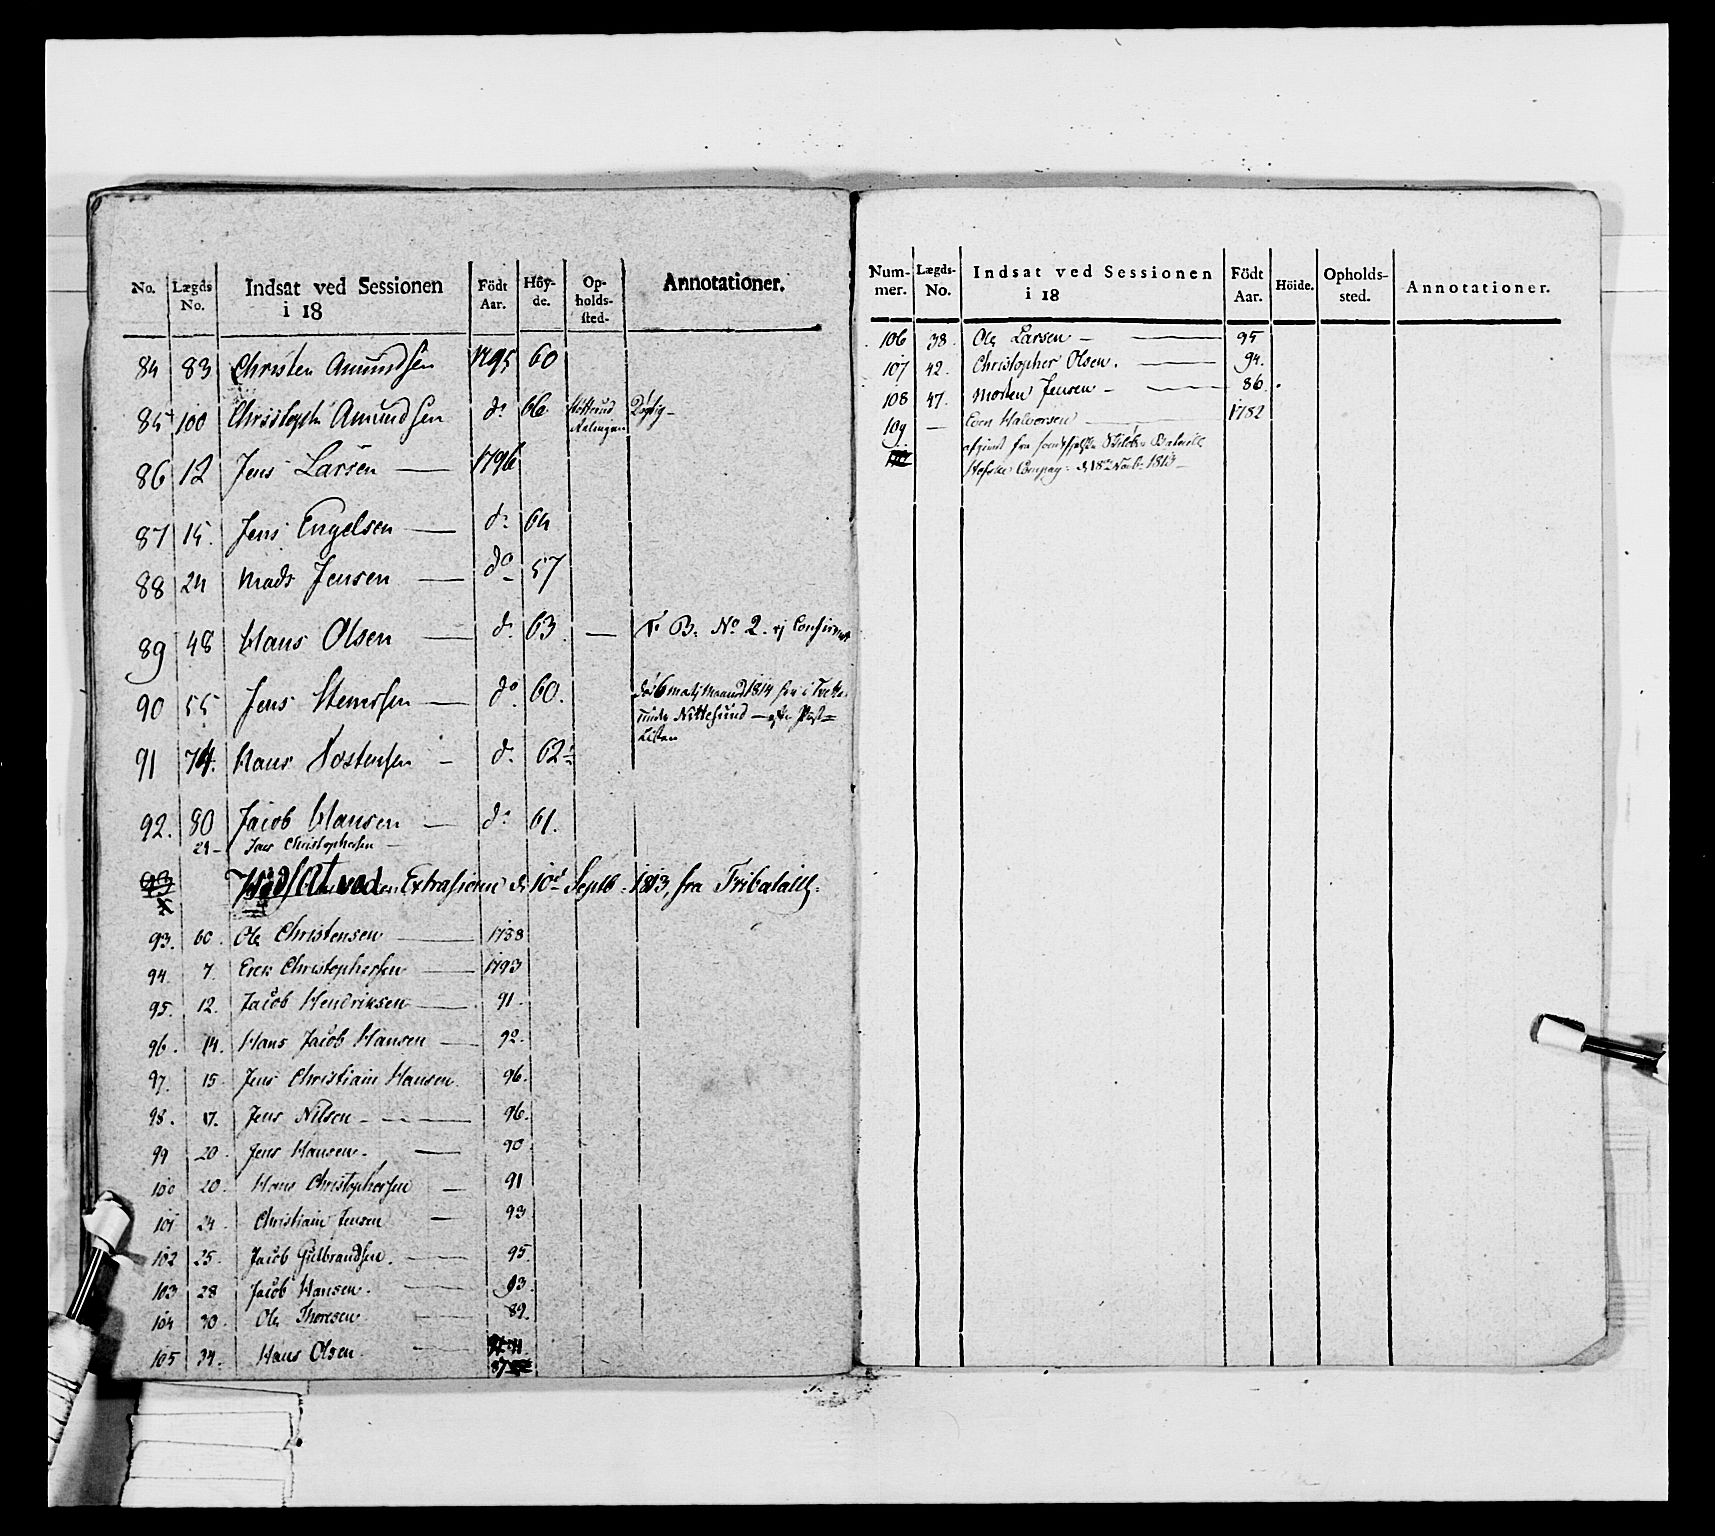 No. Lægds No. Indsat ved Sessionen i 18 Födt Aar. Höy-de. Op-holds-sted. Annotationer.
84 83 Christen Amundsen 1795 60
85 100 Christoph Amundsen do 66
86 12 Jens Larsen — 1796
87 15. Jens Engelsen — do 64
88 24 Mads Jensen — do 57
89 48 Hans Olsen — do 63 — No 2.
90 55 Jens Stenersen — do 60.
91 74. Hans Tostensen — do 62
92. 80 Jacob Hansen — do 61.
21 – Christophersen –
93
Indsat ved Extrasionen d. 10d Septb: 1813, fra
93. 60. Ole Christensen — 1788
94. 7. Christophersen — 1793
95. 12. Jacob Hendriksen — 91.
96. 14. Hans Jacob Hansen — 92.
97. 15. Jens Christian Hansen 96.
98. 17. Jens Nilsen — 96.
99 20. Jens Hansen. — 90.
100 20. Hans Christophersen — 91
101 24. Christian Jensen — 93
102 25. Jacob Gulbrandsen. — 95.
103 28 Jacob Hansen. — 93.
104 30. Ole Thoresen — 89.
105 34. Hans Olsen —
87
Num-mer. Lægds-No. Indsat ved Sessionen i 18 Födt Aar. Höide. Opholds-sted. Annotationer.
106 38. Ole Larsen — 95
107 42. Christopher Olsen. — 94.
108 47. Morten Jensen — 86.
109 — Even Halvorsen — 1782
fra
1813 –